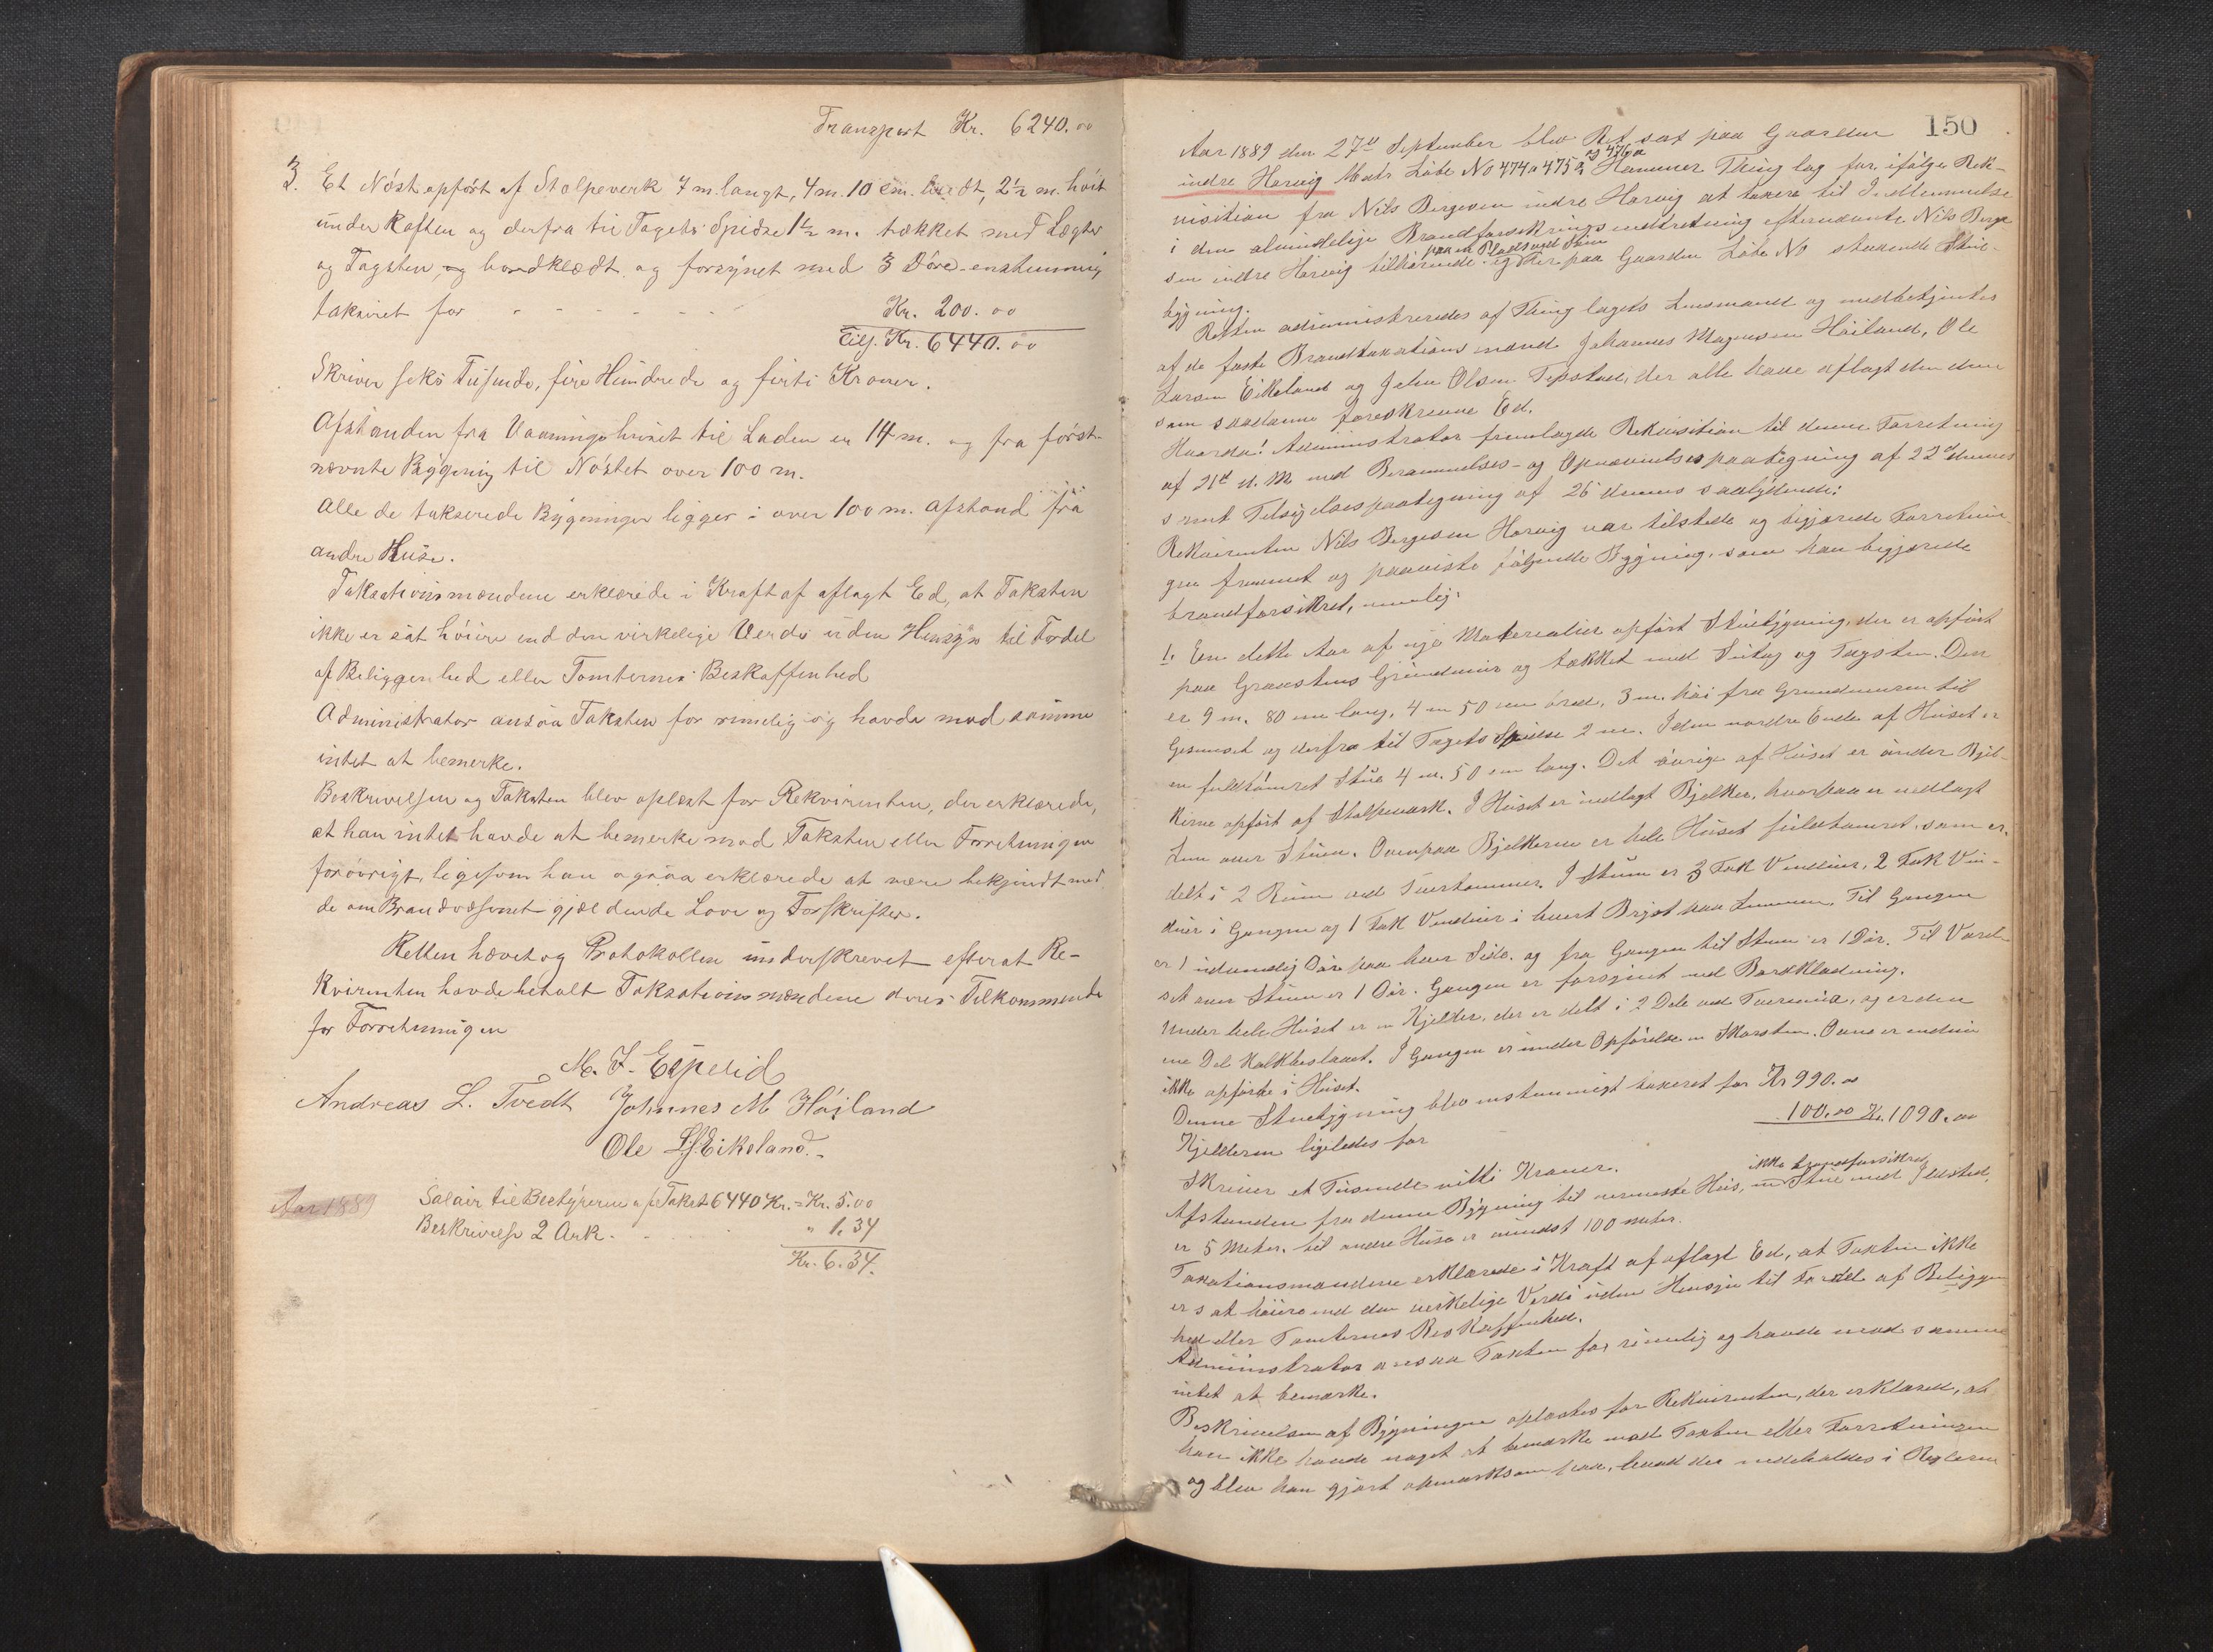 Transport Kr. 6240.00
3. Et Nöst opfört af Stolpeverk 7 m. langt, 4 m. 10 cm. bredt, 2½ m. höit
under Raften og derfra til Tagets Spidse 1½ m. tækket med Lægter
og Tagsten, og bordklædt og forsynet med 3 Döre enstemmig
taksiret for - - - - - - Kr. 200.00
Tils. Kr. 6440.00
Skriver seks Tusinde, fire Hundrede og firti Kroner.
Afstanden fra Vaaningshuset til Laden er 14 m. og fra först-
nævnte Bygning til Nöstet over 100 m.
Alle de takserede Bygninger ligger i over 100 m. Afstand fra
andre Huse.
Taksationsmændene erklærede i Kraft af aflagt Ed, at Taksten
ikke er sat höiere end den virkelige Værdi uden Hensyn til Fordel
af Beliggenhed eller Tomternes Beskaffenhed
Administrator ansaa Taksten for rimelig og havde mod samme
intet at bemerke.
Beskrivelsen og Taksten blev oplæst for Rekvirenten, der erklærede,
at han intet havde at bemerke mod Taksten eller Forretningen
forövrigt, ligesom han ogsaa erklærede at være bekjendt med
de om Brandvæsenet gjældende Love og Forskrifter.
Retten hævet og Protokollen underskrevet efterat Re-
kvirenten havde betalt Taksationsmændene deres Tilkommende
for Forretningen
M. J. Espelid
Andreas L. Tvedt Johnnes M Höjland
Ole L. Eikeland.
Aar 1889
Salair til Bestyreren af Takst 6440 Kr. = Kr. 5.00
Beskrivelse 2 Ark. - - " 1.34
Kr. 6.34.
150
Aar 1889 den 27de September blev Ret sat paa Gaarden
og 476a
indre Harvig Matr Löbe No 474a 475a Hammer Thinglag for ifölge Rek-
visition fra Nils Bergesen indre Harvig at taxere til Indlemmelse
i den almindelige Brandforsikringsindretning efternævnte Nils Berge-
paa en Plads ved Söen
sen indre Harvig tilhörende og her paa Gaarden Löbe No staaende Stue-
bygning.
Retten administreredes af Thinglagets Lensmand og medbetjentes
af de faste Brandtaxationsmænd Johannes Magnesen Höiland, Ole
Larsen Eikeland og John Olsen Tepstad, der alle have aflagt den dem
som saadanne foreskrevne Ed.
Hvorda! Administrator fremlagde Rekvisition til denne Forretning
af 21de d. M med Berammelses- og Opnævnelsespaategning af 22de dennes
samt Tilsigelsespaategning af 26 dennes saalydende:
Rekvirenten Nils Bergesen Harvig var tilstede og begjærede Forretnin-
gen fremmet og paaviste fölgende Bygning, som han begjærede
brandforsikret, nemlig:
1. En dette Aar af nye Materialier opfört Stuebygning, der er opfört
paa Graastens Grundmur og tækket med Sutag og Tagsten. Den
er 9 m. 80 cm lang, 4 m 50 cm bred, 3 m. höi fra Grundmuren til
Gesimset og derfra til Tagets Spidse 2 m. I den nordre Ende af Huset er
en fuldtömret Stue 4 m. 50 cm lang. Det övrige af Huset er under Bjel-
kerne opfört af Stolpeværk. I Huset er indlagt Bjelker, hvorpaa er nedlagt
Lem over Stuen. Ovenpaa Bjelkerne er hele Huset fuldtömret, som er
delt i 2 Rum ved Tvertömmer. I Stuen er 3 Fak Vinduer, 2 Fak Vin-
duer i Gangen og 1 Fak Vinduer i hvert Bryst paa Lemmen. Til Gangen
er 1 udvendig Dör paa hver Side, og fra Gangen til Stuen er 1 Dör. Til Værel-
set over Stuen er 1 Dör. Gangen er forsynet med Bordklædning.
Under hele Huset er en Kjelder, der er delt i 2 Dele ved Tvermur, og er den
ene Del kalkbeslaaet. I Gangen er under Opförelse en Skorsten. Ovne er endnu
ikke opförte i Huset.
Denne Stuebygning blev enstemmigt taxeret for Kr 990.00
Kjelderen ligeledes for - 100.00 Kr. 1090.00
Skriver et Tusinde nitti Kroner.
ikke brandforsikret
Afstanden fra denne Bygning til nærmeste Hus, en Stue med Ildsted,
er 5 Meter, til andre Huse er mindst 100 meter.
Taxationsmændene erklærede i Kraft af aflagt Ed, at Taxten ikke
er sat höiere end den virkelige Værdi uden Hensyn til Fordel af Beliggen
hed eller Tomternes Beskaffenhed.
Administrator ansaa Taxten for rimelig og havde mod samme
intet at bemærke.
Beskrivelsen af Bygningen oplæstes for Rekvirenten, der erklæred, at
han ikke havde noget at bemærke mod Taxten eller Forretningen
og blev han gjort opmærksom paa, hvad der indeholdes i Reglerne